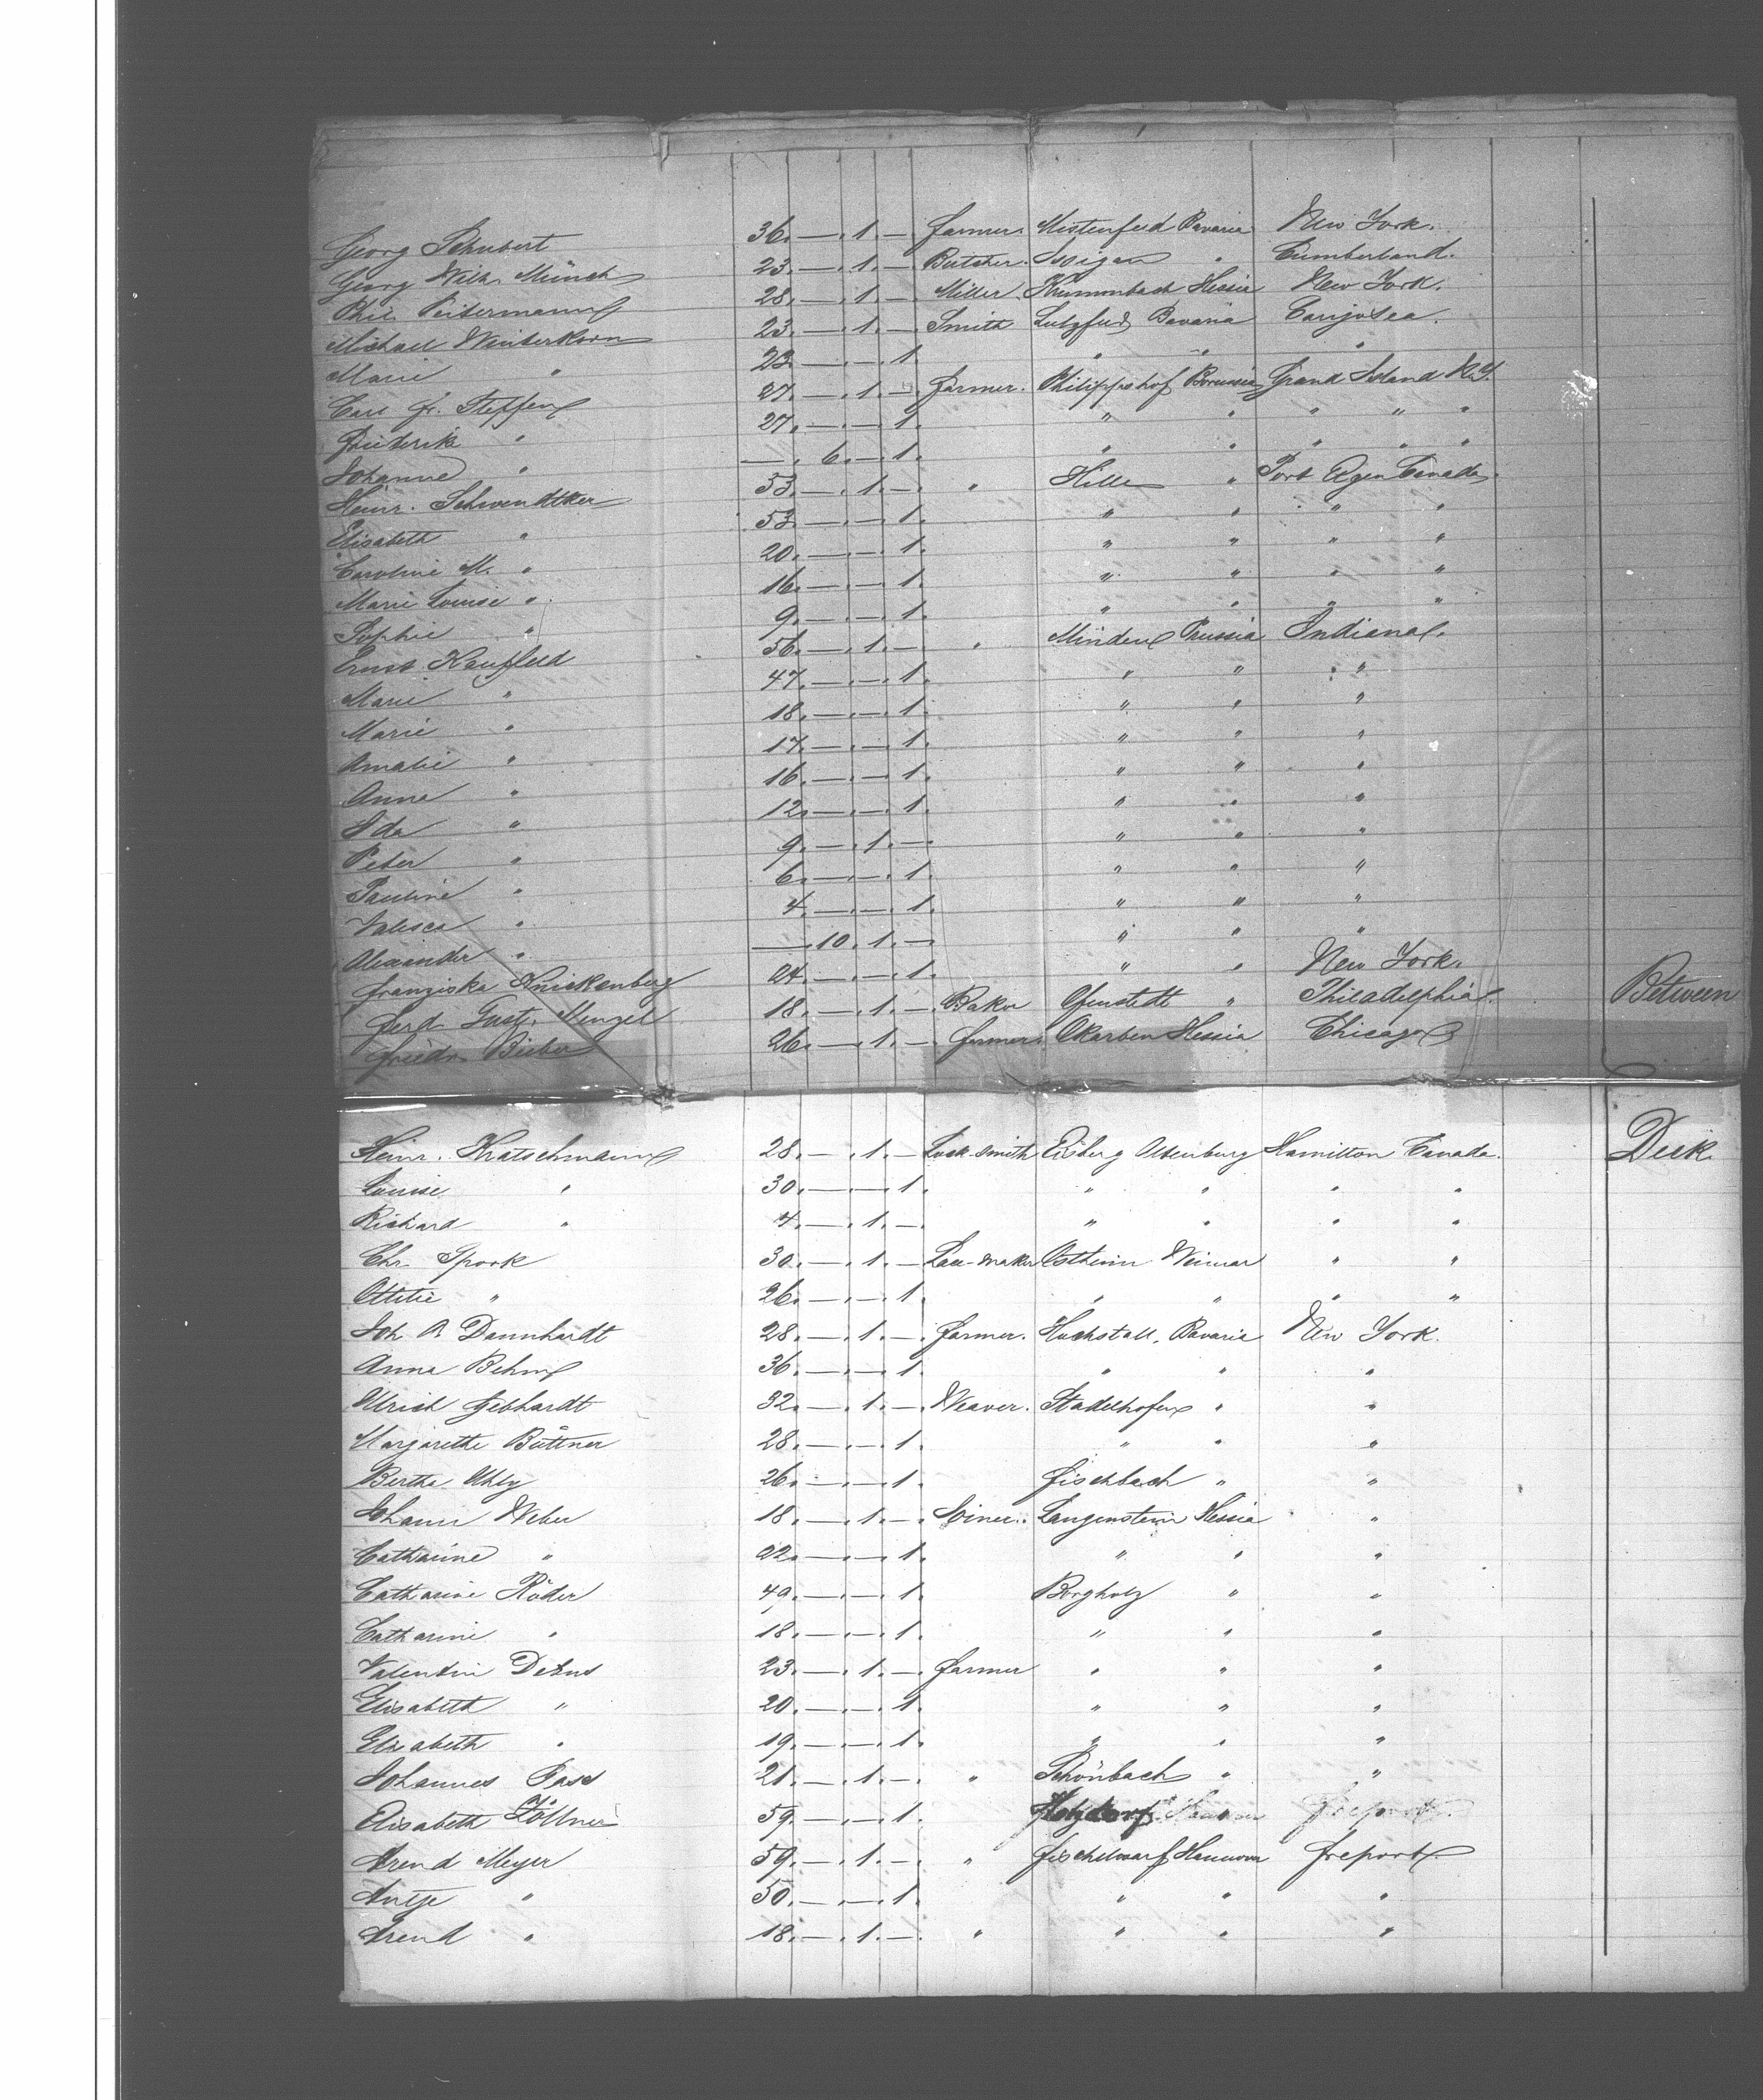 Georg Schubert 36. — . 1. — farmer. Mistenfeld Bavaria New York.
Georg Wilh. Münch 23. — . 1. — Butcher. " Cumberland.
Phil. 28. — . 1. — Miller. Krummbach Hessia New York.
Michael Winterkorn 23. — . 1. — Smith Bavaria
Marie " 23. — . — . 1. " " "
Carl Fr. Steffen 27. — . 1. — farmer. Philippshof Borussia Grand Island N.Y.
Friederik " 27. — . — . 1. " " " " "
Johanne " — . 6. — . 1. " " " " "
Heinr. Schwendtker 53. — . 1. — " Hille " Port Elgen Canada.
Elisabeth " 53. — . — . 1. " " " "
Caroline M. " 20. — . — . 1. " " " "
Marie Louise " 16. — . — . 1. " " " "
Sophie " 9. — . — . 1. " " " "
Ernst Kaufeld 56. — . 1. — " Minden Prussia Indiana.
Marie " 47. — . — . 1. " " "
Marie " 18. — . — . 1. " " "
Amalie " 17. — . — . 1. " " "
Anna " 16. — . — . 1. " " "
Ida " 12. — . — . 1. " " "
Peter " 9. — . 1. — " " "
Pauline " 6. — . — . 1. " " "
Valesca " 4. — . — . 1. " " "
Alexander " — . 10. 1. — " " "
Franziska Knickenberg 24. — . — . 1. " " New York.
Ferd. Gust. Menzel 18. — . 1. — Baker Ofenstedt " Philadelphia. Between
Friedr. Bieber 26. — . 1. — farmer. Okarben Hessia Chicago
Heinr. Kratschmann 28. — . 1. — Lock-smith Eisberg Altenburg Hamilton Canada. Deck.
Louise " 30. — . — . 1. " " " "
Richard " 4. — . 1. — " " " "
Chr. Spork 30. — . 1. — Lace-maker Ostheim Weimar " "
Ottilie " 26. — . — . 1. " " " "
Joh. A. Dannhardt 28. — . 1. — farmer. Huchstall. Bavaria New York.
Anna Behm 36. — . — . 1. " " "
Ulrich Gebhardt 32. — . 1. — Weaver. Stadelhofen " "
Margarethe Büttner 28. — . — . 1. " " "
Bertha Uhly 26. — . — . 1. Fischbach " "
Johann Weber 18. — . 1. — Joiner. Langenstein Hessia "
Catharine " 22. — . — . 1. " " "
Catharine Röder 49. — . — . 1. Borgholz " "
Catharine " 18. — . — . 1. " " "
Valentin Debus 23. — . 1. — farmer " " "
Elisabeth " 20. — . — . 1. " " "
Elisabeth " 19. — . — . 1. " " "
Johannes Pass 21. — . 1. — " Schönbach " "
Elisabeth Zöllner 59. — . — . 1. Holzdorf
Arend Meyer 59. — . 1. — " Hannover Freeport.
Antje " 50. — . — . 1. " " "
Arend " 18. — . 1. — " " " "